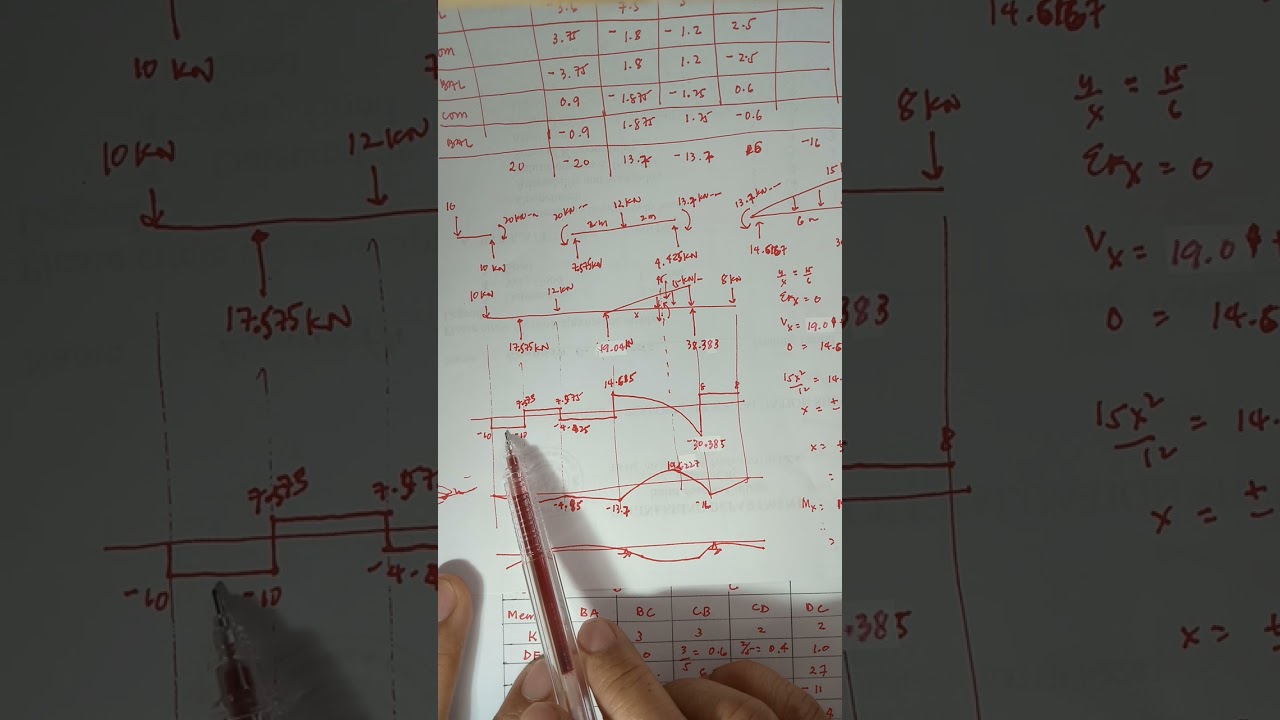 -3.6 7.5 3
com 3.75 -1.8 -1.2 2.5
BAL -3.75 1.8 1.2 -2.5
com 0.9 -1.875 -1.25 0.6
BAL -0.9 1.875 1.25 -0.6
20 -20 13.7 -13.7 -16
10 20kN-m 20kN-m 12kN 13.7kN-m 13.7kN-m 15
2m 2m 6m
10kN 7.575kN 4.425kN 14.6167
10kN 12kN 15kN/m 8kN
x
17.575kN 19.04kN 38.383
y/x = 15/6
ΣFx = 0
Vx = 19.04
0 = 14.6
15x²/12 = 14.
x = ±
x =
=
Mx =
∴
7.575 7.575 14.615 8 8
-10 -10 -4.425 -30.385
19.227
-4.85 -13.7 -16
Mem BA BC CB CD DC
K 3 3 2 2
DF 0 3/5 = 0.6 2/5 = 0.4 1.0
27
-11
10 kN
10kN 12kN
17.575KN
7.575 7.575
-10 -10 -4.
14.6167
8kN
y/x = 15/6
ΣFx = 0
Vx = 19.0
.383 0 = 14.6
15x²/12 = 14.
8
x = ±
.385 x =